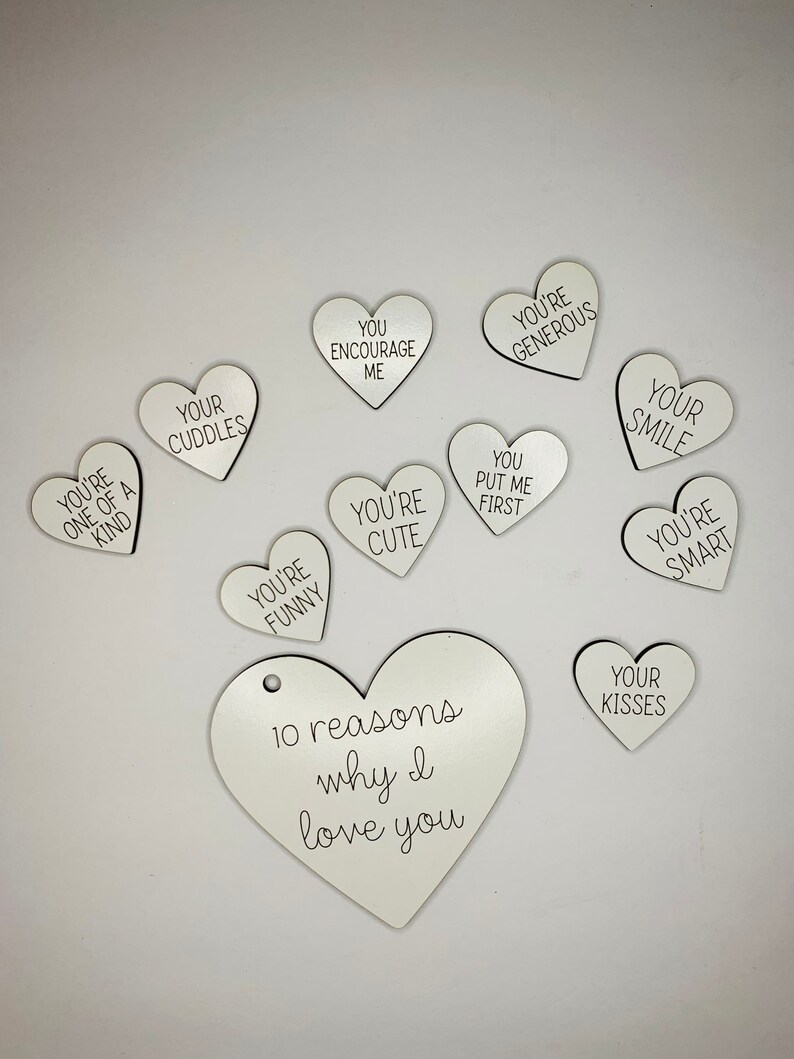 YOU
ENCOURAGE
ME
YOU'RE
GENEROUS
YOUR
CUDDLES
YOUR
SMILE
YOU'RE
ONE OF A
KIND
YOU'RE
CUTE
YOU
PUT ME
FIRST
YOU'RE
SMART
YOU'RE
FUNNY
YOUR
KISSES
10 reasons
why I
love you